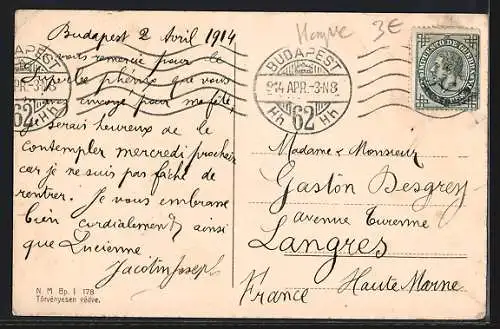 Budapest 2 Avril 1914
vous remercie pour le
superbe phénix que vous
avez envoyé pour ma fête,
je serais heureux de le
contempler mercredi prochain
car je ne suis pas fâché de
rentrer. Je vous embrasse
bien cordialement ainsi
que Lucienne
Jacotin Joseph
N. M. Bp. I 178
Törvényesen védve.
3€
BUDAPEST
914 APR.-3N8
62
BUDAPEST
APR.-3N8
62
Madame & Monsieur
Gaston Desgrey
avenue Turenne
Langres
Haute Marne
France